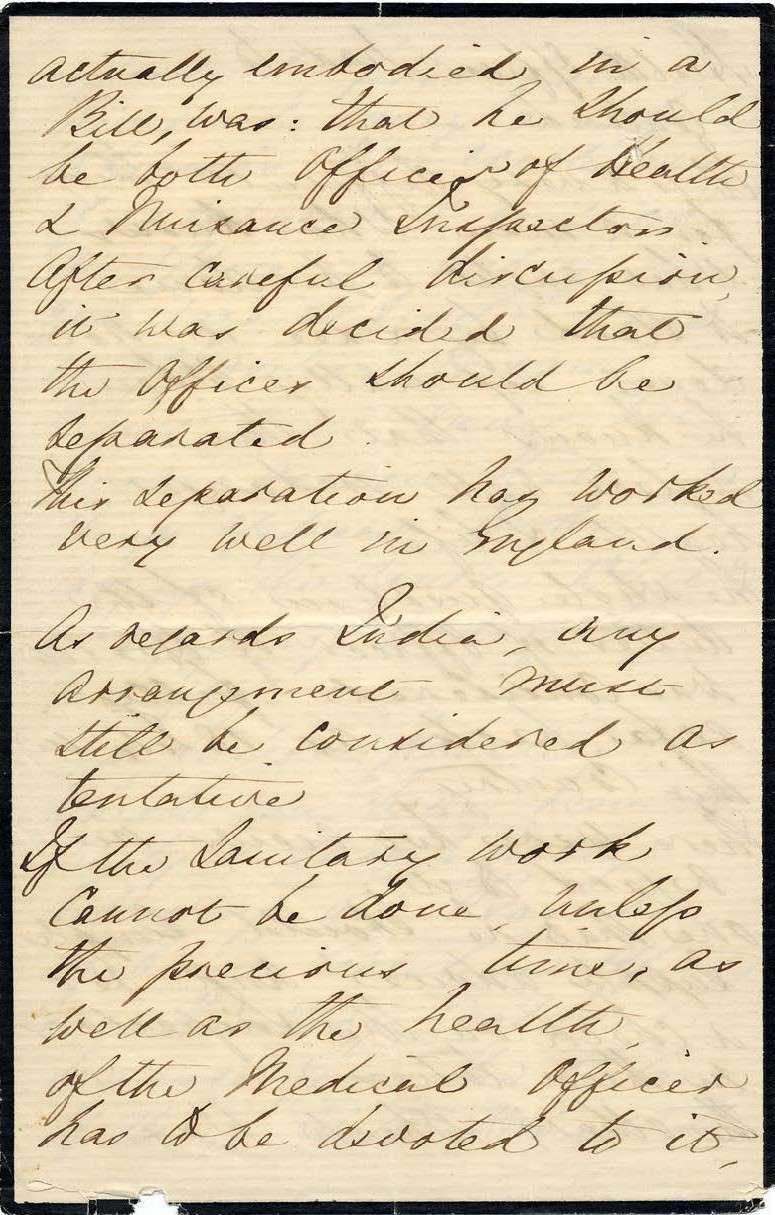 actually embodied in a
Bill, was: that he should
be both Officer of Health
& Nuisance Inspector.
After careful discussion,
it was decided that
the Offices should be
separated.
This separation has worked
very well in England.
As regards India, any
arrangement must
still be considered as
tentative
If the Sanitary work
cannot be done, unless
the precious time, as
well as the health,
of the Medical Officer
has to be devoted to it,